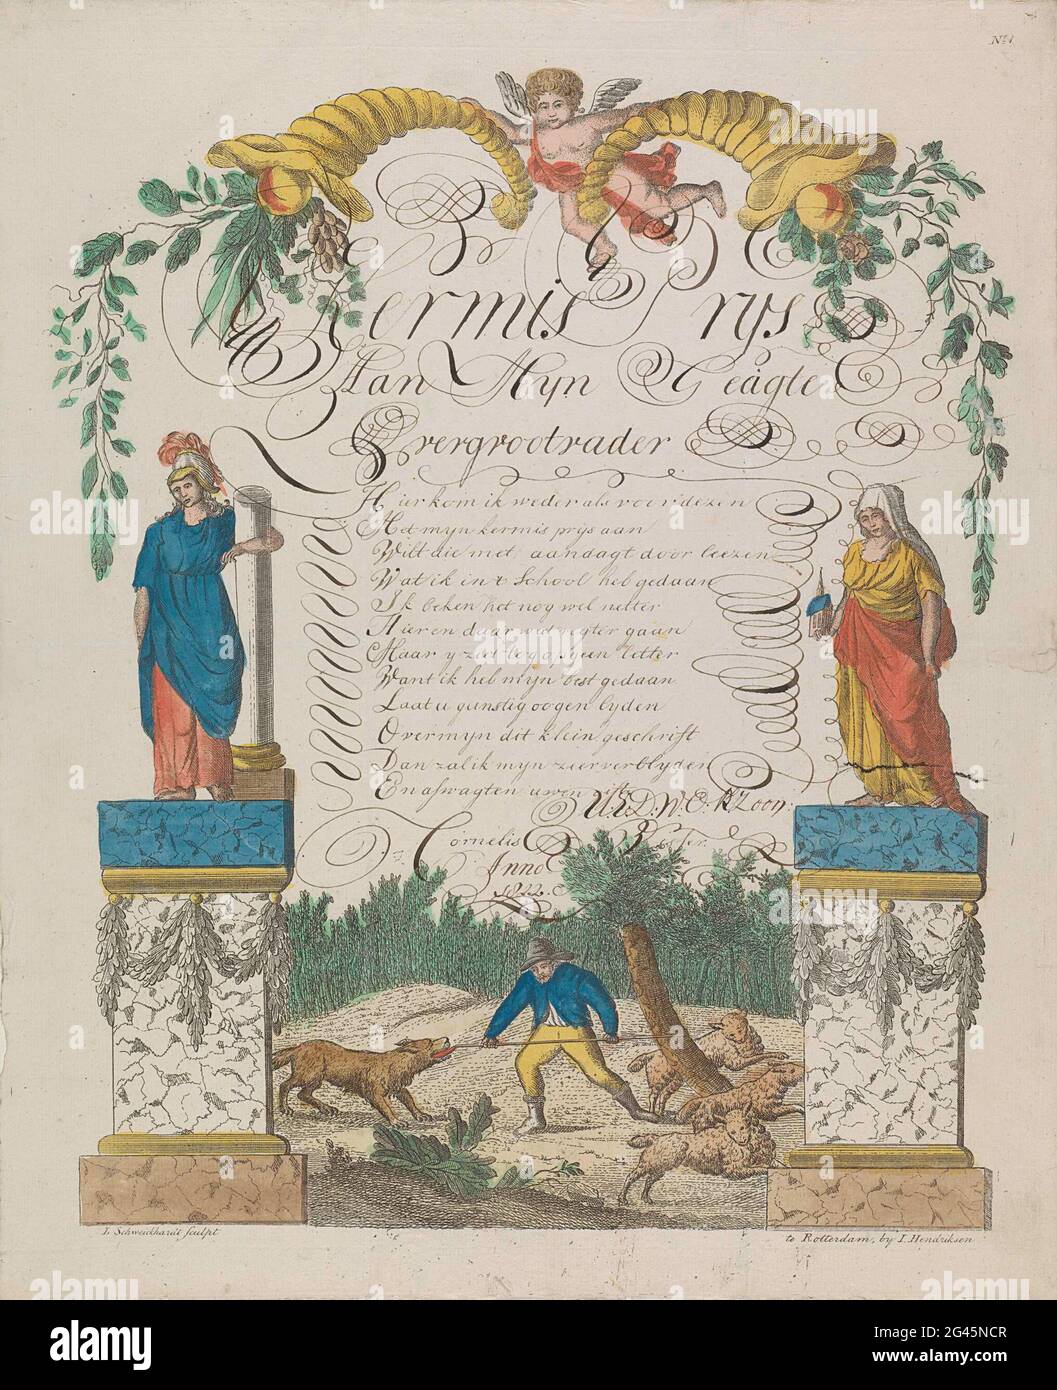 No. 1
Kermis Prys
Aan Myn Geagte
Overgrootvader
Hier kom ik weder als voor dezen
Met myn kermis prys aan
Wilt die met aandagt door leezen
Wat ik in t School heb gedaan
Ik beken het nog wel netter
Hier en daar wat regter gaan
Maar y ziet tog op geen letter
Want ik heb myn best gedaan
Laat u gunstig oogen lyden
Over myn dit klein geschrift
Dan zal ik myn zeer verblyden
En afwagten uwen gift
U.E.D.W.O.K Zoon
Cornelis
Anno
1822
I. Schweickhardt sculpt
te Rotterdam, by I. Hendriksen
alamy
Image ID: 2G45NCR
www.alamy.com